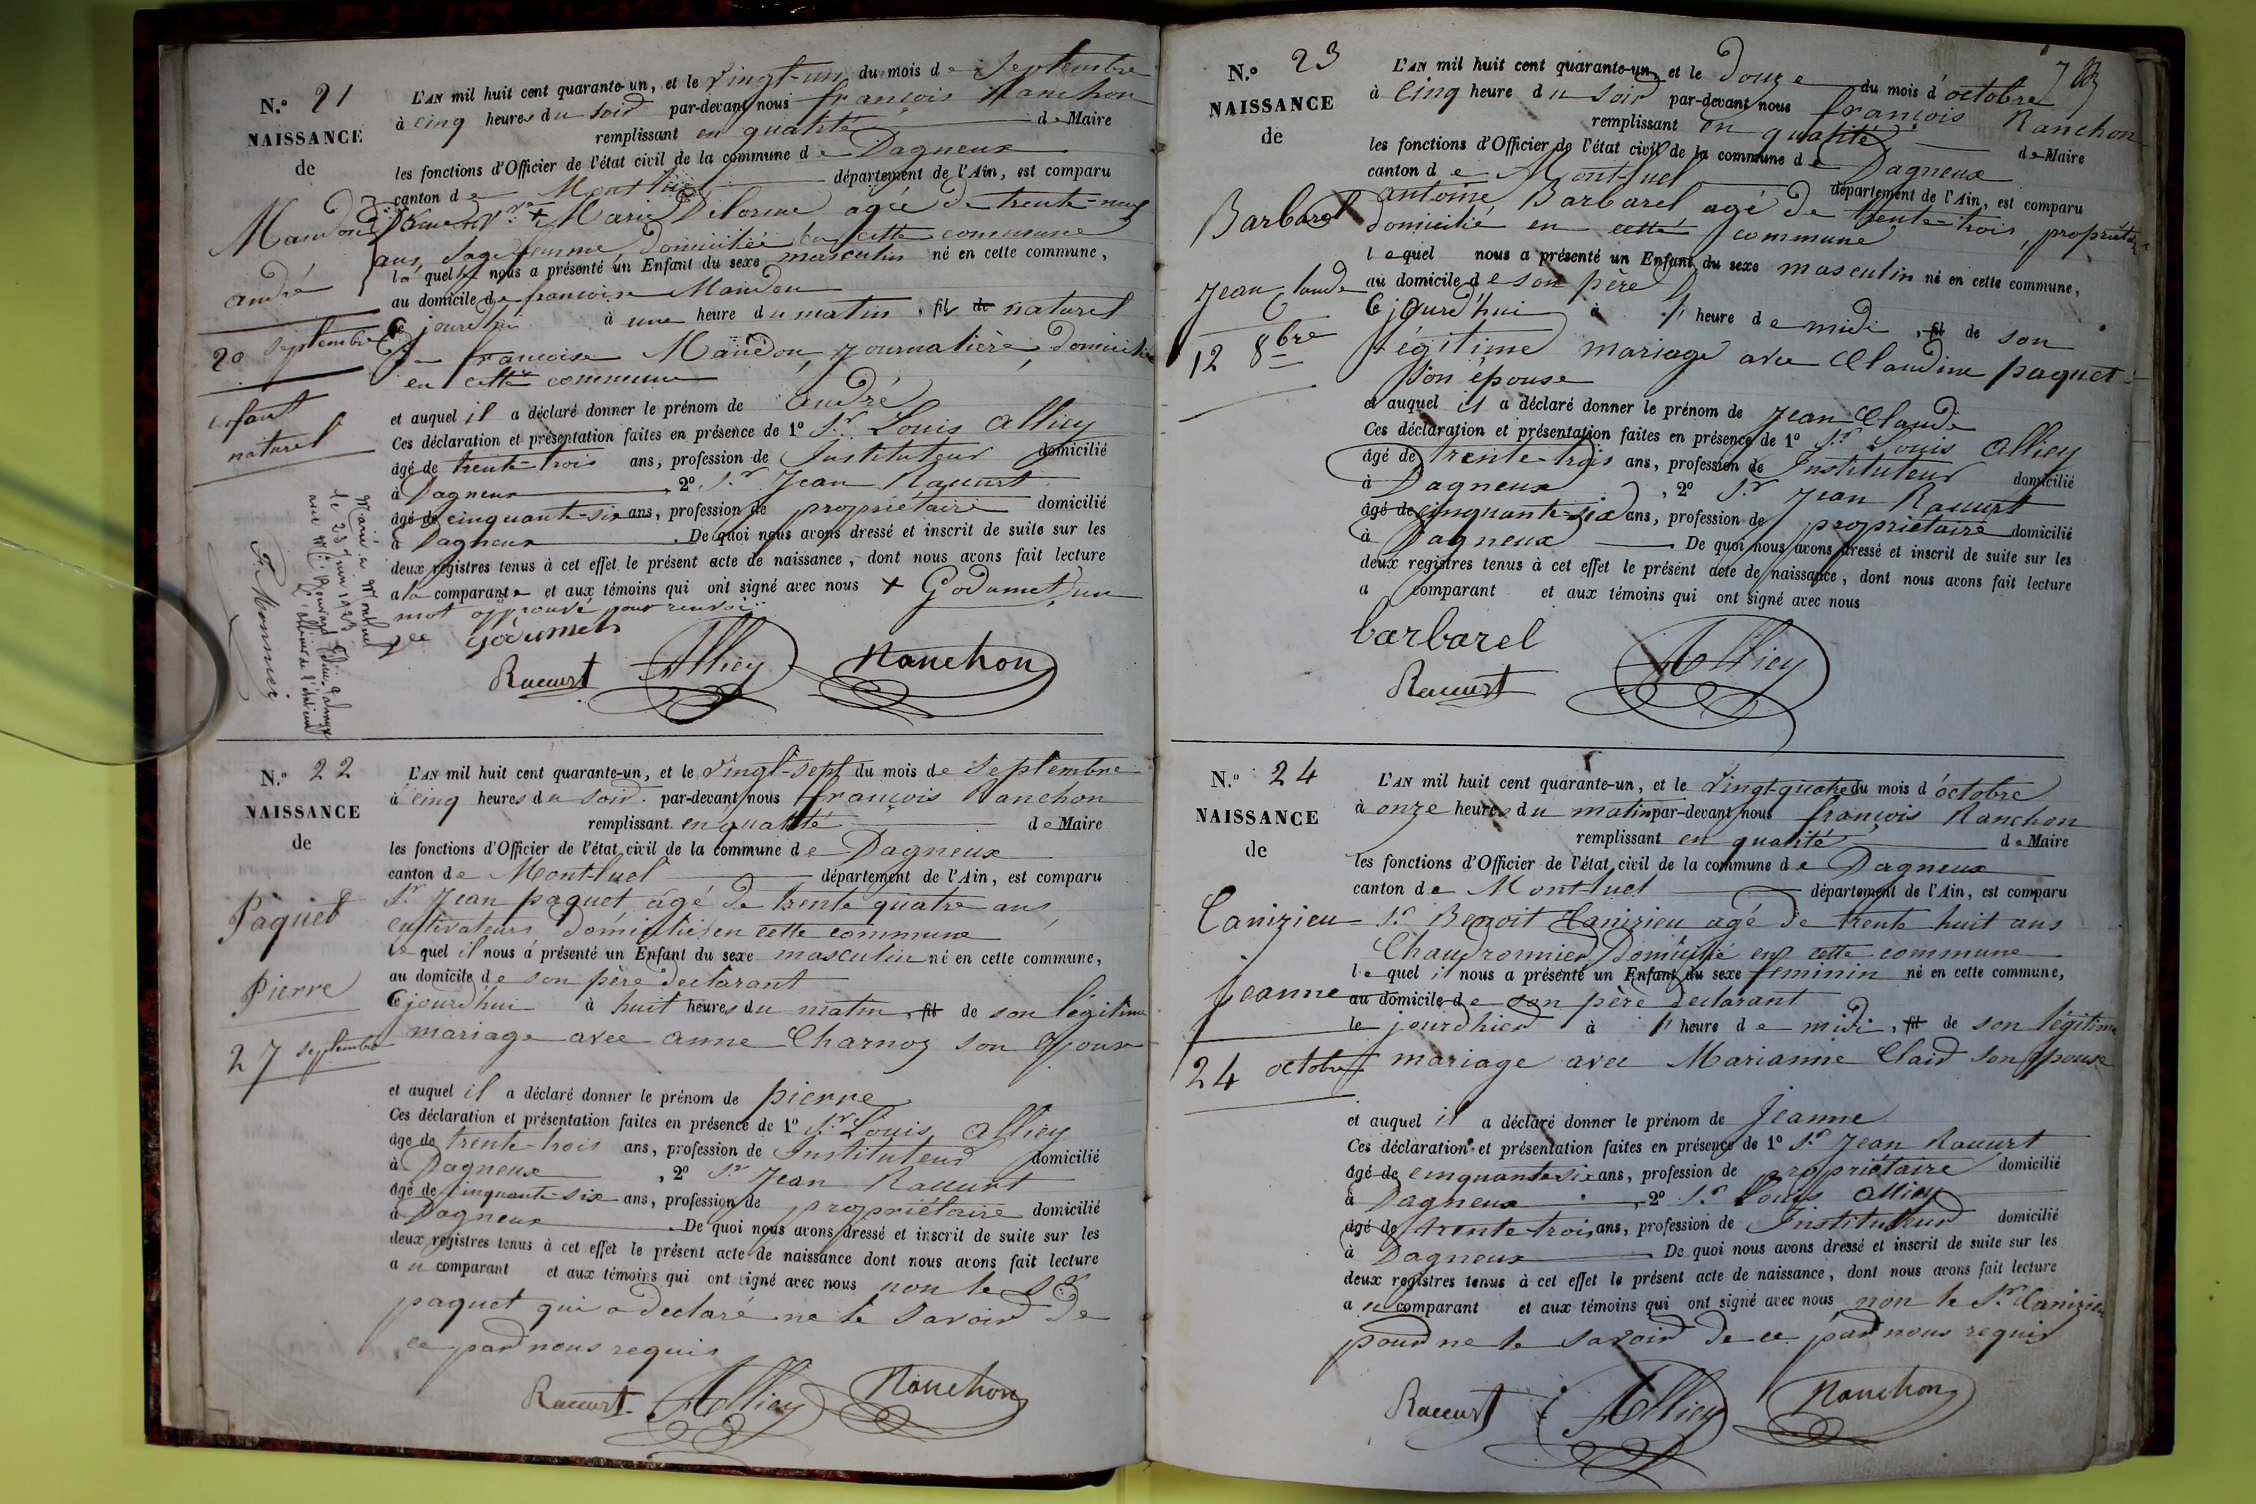 N.° 21
NAISSANCE
de
Mandon
andré
20 septembre
enfant
naturel
Marié à Montluel
le 23 Juin 1923
L'officier de l'état civil
L'AN mil huit cent quarante-un, et le vingt-un du mois de septembre
à cinq heures du soir par-devant nous françois Ranchon
remplissant en qualité de Maire
les fonctions d'Officier de l'état civil de la commune de Dagneux
canton de Montluel département de l'Ain, est comparu
Marie Delorme agée de trente-neuf
ans, sage femme, domiciliée en cette commune
laquelle nous a présenté un Enfant du sexe masculin né en cette commune,
au domicile de francoise Mandon
Ce jourd'hui à une heure du matin, fils de naturel
de francoise Mandon, journalière, domiciliée
en cette commune
et auquel il a déclaré donner le prénom de andré
Ces déclaration et présentation faites en présence de 1° Sr. Louis Alliey
âgé de trente-trois ans, profession de Instituteur domicilié
à Dagneux, 2° Sr. Jean Raccurt
âgé de cinquante-six ans, profession de propriétaire domicilié
à Dagneux. De quoi nous avons dressé et inscrit de suite sur les
deux registres tenus à cet effet le présent acte de naissance, dont nous avons fait lecture
a la comparante et aux témoins qui ont signé avec nous + Godumet, un
mot approuvé pour renvoi
Godumet
Raccurt Alliey Ranchon
N.° 22
NAISSANCE
de
Paquet
Pierre
27 septembre
L'AN mil huit cent quarante-un, et le vingt-sept du mois de septembre
à cinq heures du soir par-devant nous françois Ranchon
remplissant en qualité de Maire
les fonctions d'Officier de l'état civil de la commune de Dagneux
canton de Mont-luel département de l'Ain, est comparu
Sr. Jean paquet agé de trente quatre ans,
cultivateur domicilié en cette commune
le quel il nous a présenté un Enfant du sexe masculin né en cette commune,
au domicile de son père declarant
Ce jourd'hui à huit heures du matin, fil de son légitime
mariage avec anne Charnoz son épouse
et auquel il a déclaré donner le prénom de pierre
Ces déclaration et présentation faites en présence de 1° Sr. Louis Alliey
âgé de trente-trois ans, profession de Instituteur domicilié
à Dagneux, 2° Sr Jean Raccurt
âgé de cinquante-six ans, profession de propriétaire domicilié
à Dagneux. De quoi nous avons dressé et inscrit de suite sur les
deux registres tenus à cet effet le présent acte de naissance dont nous avons fait lecture
au comparant et aux témoins qui ont signé avec nous non le Sr
paquet qui a declaré ne le savoir de
ce par nous requis
Raccurt Alliey Ranchon
N.° 23
NAISSANCE
de
Barbarel
Jean Claude
12 8bre
L'AN mil huit cent quarante-un, et le douze du mois d'octobre
à cinq heure du soir par-devant nous françois Ranchon
remplissant en qualité de Maire
les fonctions d'Officier de l'état civil de la commune de Dagneux
canton de Mont-luel département de l'Ain, est comparu
antoine Barbarel agé de trente-trois, propriétaire
domicilié en cette commune
lequel nous a présenté un Enfant du sexe masculin né en cette commune,
au domicile de son père
Ce jourd'hui à heure de midi, fil de son
légitime mariage avec Claudine paquet
son épouse
et auquel il a déclaré donner le prénom de Jean Claude
Ces déclaration et présentation faites en présence de 1° Sr Louis Alliey
âgé de trente-trois ans, profession de Instituteur domicilié
à Dagneux, 2° Sr Jean Raccurt
âgé de cinquante-six ans, profession de propriétaire domicilié
à Dagneux. De quoi nous avons dressé et inscrit de suite sur les
deux registres tenus à cet effet le présent acte de naissance, dont nous avons fait lecture
a comparant et aux témoins qui ont signé avec nous
barbarel
Raccurt Alliey
N.° 24
NAISSANCE
de
Canizieu
Jeanne
24 octobre
L'AN mil huit cent quarante-un, et le vingt-quatre du mois d'octobre
à onze heures du matin par-devant nous françois Ranchon
remplissant en qualité de Maire
les fonctions d'Officier de l'état civil de la commune de Dagneux
canton de Mont-luel département de l'Ain, est comparu
Sr Benoit Canizieu agé de trente huit ans
Chaudronnier Domicilié en cette commune
le quel il nous a présenté un Enfant du sexe feminin né en cette commune,
au domicile de son père declarant
le jourdhier à heure de midi, fil de son légitime
mariage avec Marianne Clair son épouse
et auquel il a déclaré donner le prénom de Jeanne
Ces déclaration et présentation faites en présence de 1° Sr Jean Raccurt
âgé de cinquante six ans, profession de propriétaire domicilié
à Dagneux, 2° Sr Louis Alliey
âgé de trente trois ans, profession de Instituteur domicilié
à Dagneux. De quoi nous avons dressé et inscrit de suite sur les
deux registres tenus à cet effet le présent acte de naissance, dont nous avons fait lecture
au comparant et aux témoins qui ont signé avec nous non le Sr. Canizieu
pour ne le savoir de ce par nous requis
Raccurt Alliey Ranchon